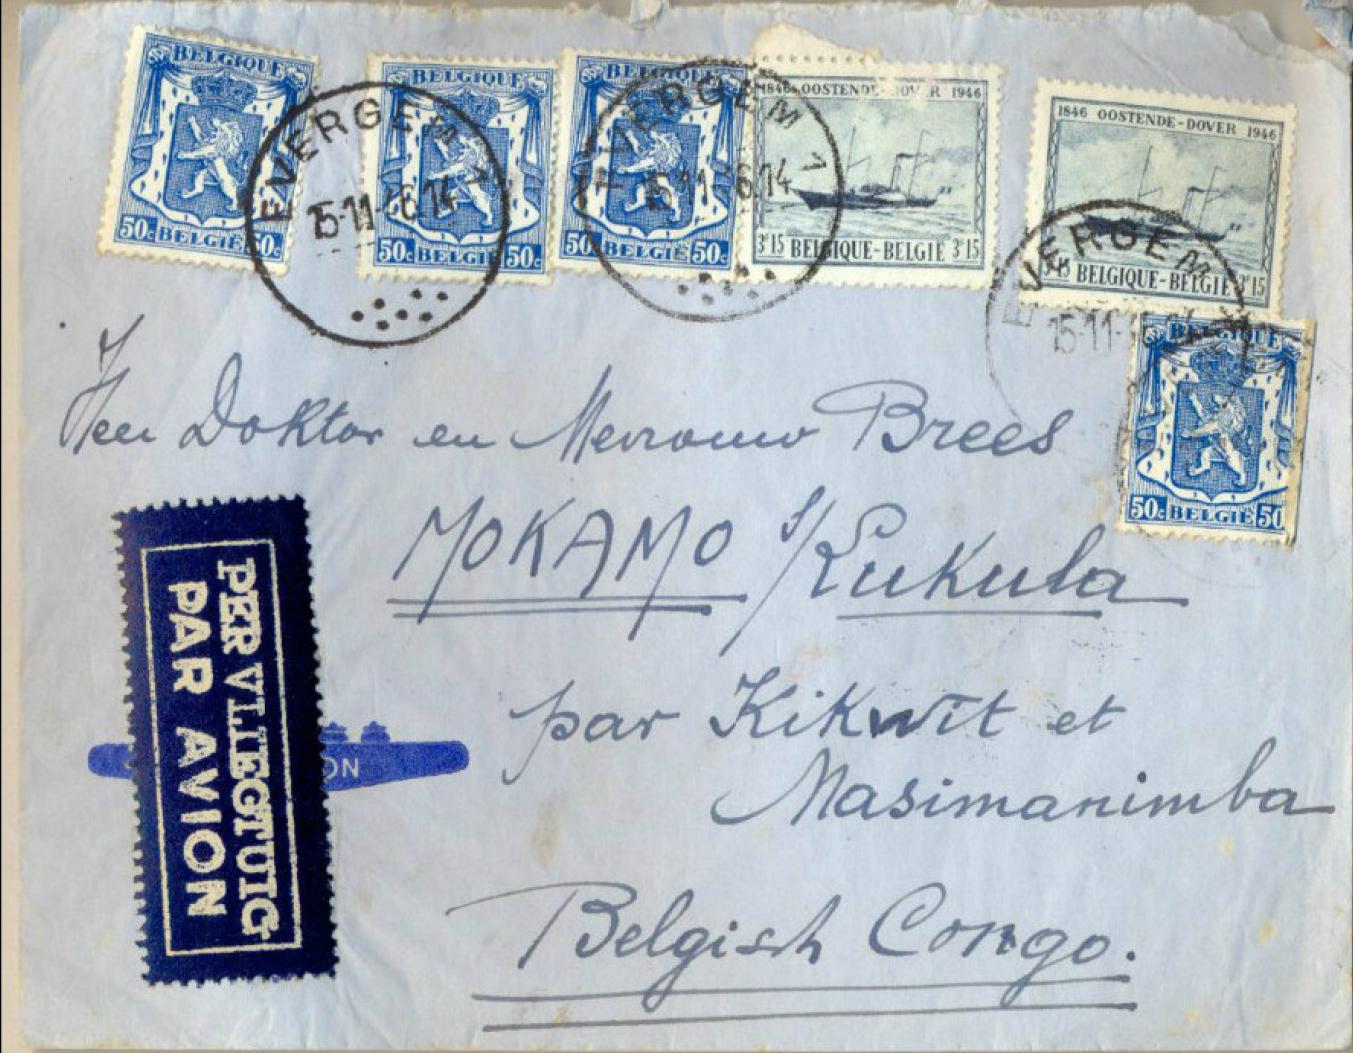 BELGIQUE
50c BELGIË 50c
BELGIQUE
50c BELGIË 50c
BELGIQUE
50c BELGIË 50c
1846 OOSTENDE-DOVER 1946
3F15 BELGIQUE-BELGIË 3F15
1846 OOSTENDE-DOVER 1946
3F15 BELGIQUE-BELGIË 3F15
BELGIQUE
50c BELGIË 50
EVERGEM 1
15-11-46 14
EVERGEM 1
15-11-46 14
EVERGEM
15-11-
Heer Doktor en Mevrouw Brees
MOKAMO s/Kukula
par Kikwit et
Masimanimba
Belgisch Congo.
PER VLIEGTUIG
PAR AVION